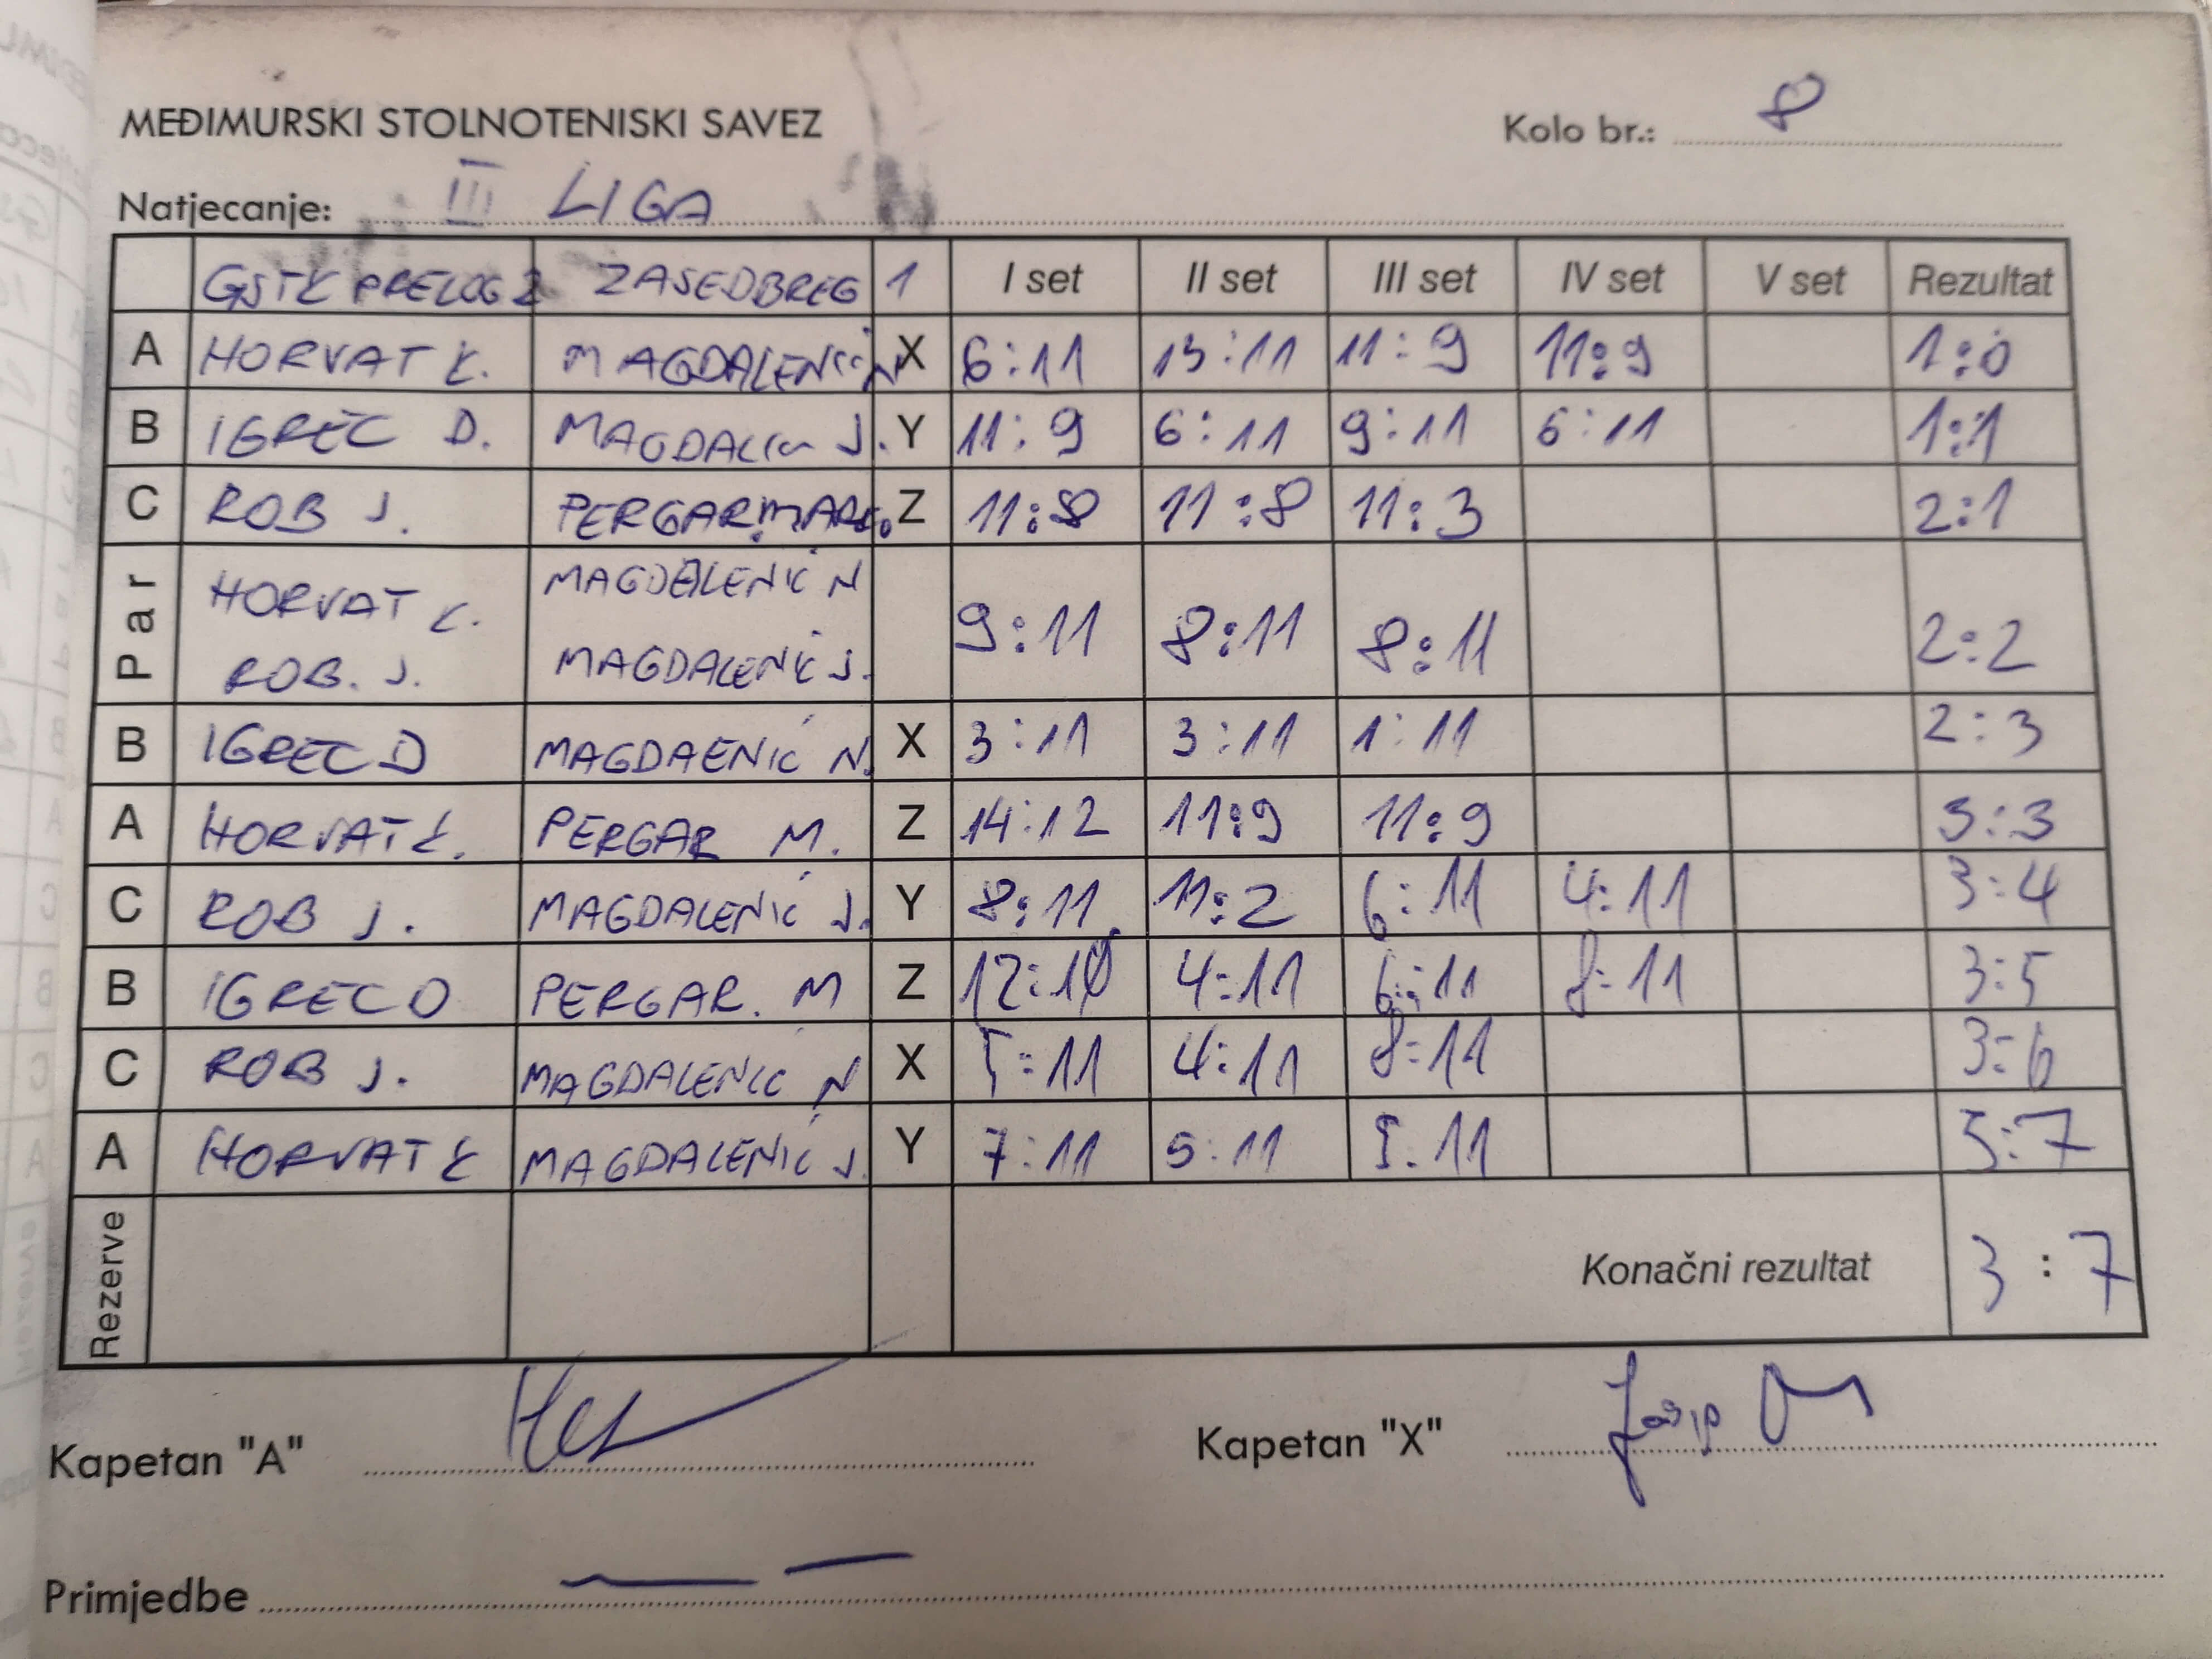 MEĐIMURSKI STOLNOTENISKI SAVEZ Kolo br.: 8
Natjecanje: III LIGA
GSTK PRELOG 2 ZASEDBREG 1 I set II set III set IV set V set Rezultat
A HORVAT K. MAGDALENIĆ N X 6:11 13:11 11:9 11:9 1:0
B IGREC D. J. Y 11:9 6:11 9:11 6:11 1:1
C ROB J. PERGAR Z 11:8 11:8 11:3 2:1
Par HORVAT K. MAGDALENIĆ N
ROB. J. MAGDALENIĆ J. 9:11 8:11 8:11 2:2
B IGREC D MAGDAENIĆ N. X 3:11 3:11 1:11 2:3
A HORVAT K. PERGAR M. Z 14:12 11:9 11:9 3:3
C ROB J. MAGDALENIĆ J. Y 8:11 11:2 6:11 4:11 3:4
B IGREC D PERGAR. M Z 12:10 4:11 6:11 8:11 3:5
C ROB J. MAGDALENIĆ N X 5:11 4:11 8:11 3:6
A HORVAT K MAGDALENIĆ J. Y 7:11 5:11 5:11 3:7
Rezerve Konačni rezultat 3:7
Kapetan "A" Kapetan "X" Josip
Primjedbe